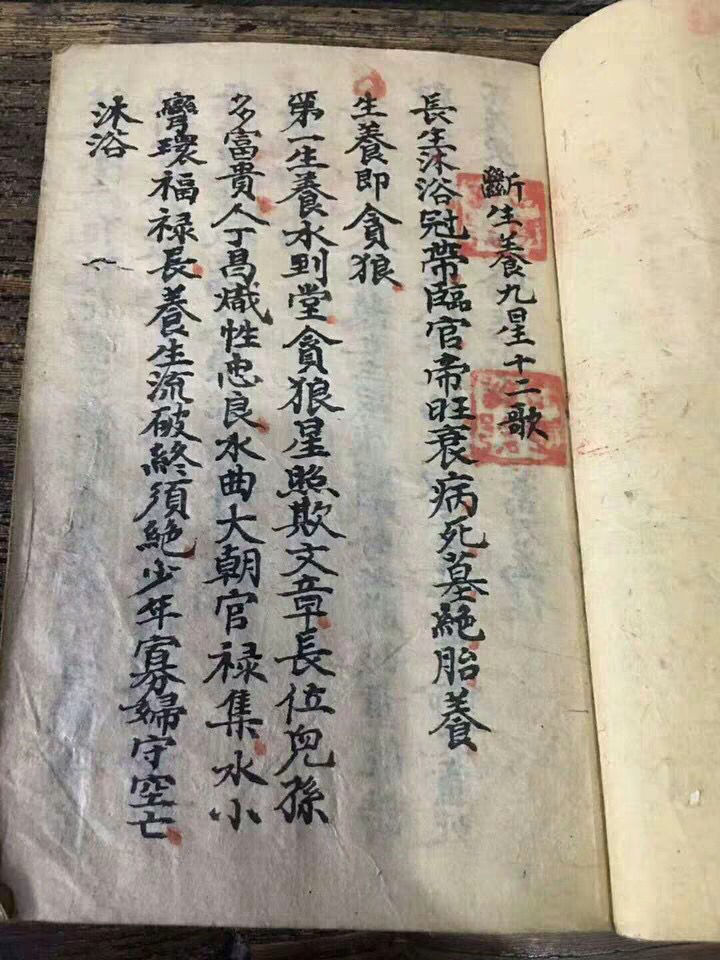 斷生養九星十二歌
長生沐浴冠帶臨官帝旺衰病死墓絕胎養
生養即貪狼
第一生養水到堂貪狼星照欺文章長位兒孫
多富貴人丁昌熾性忠良水曲大朝官祿集水小
彎環福祿長養生流破終須絕少年寡婦守空亡
沐浴